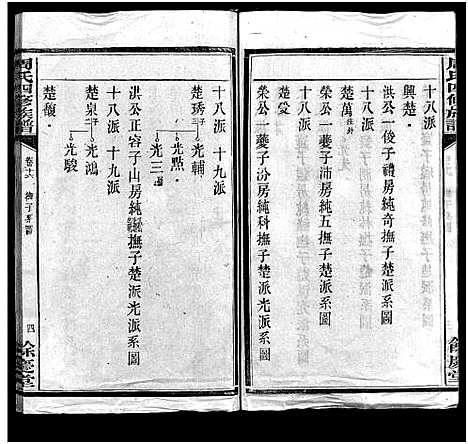 周氏四修族譜
十八派
興楚
洪公一俊子禮房純奇撫子楚派系圖
十八派
楚萬 往外
榮公一夔子沛房純五撫子楚派系圖
十八派
楚愛
榮公一夔子汾房純科撫子楚派光派系圖
餘慶堂
十八派 十九派
楚琇 子 光輔
光點
光三
洪公正容子山房純撫子楚派光派系圖
十八派 十九派
楚泉 子 光鴻
光駿
楚馥
周氏四修族譜
卷十六
撫子系圖
四
餘慶堂